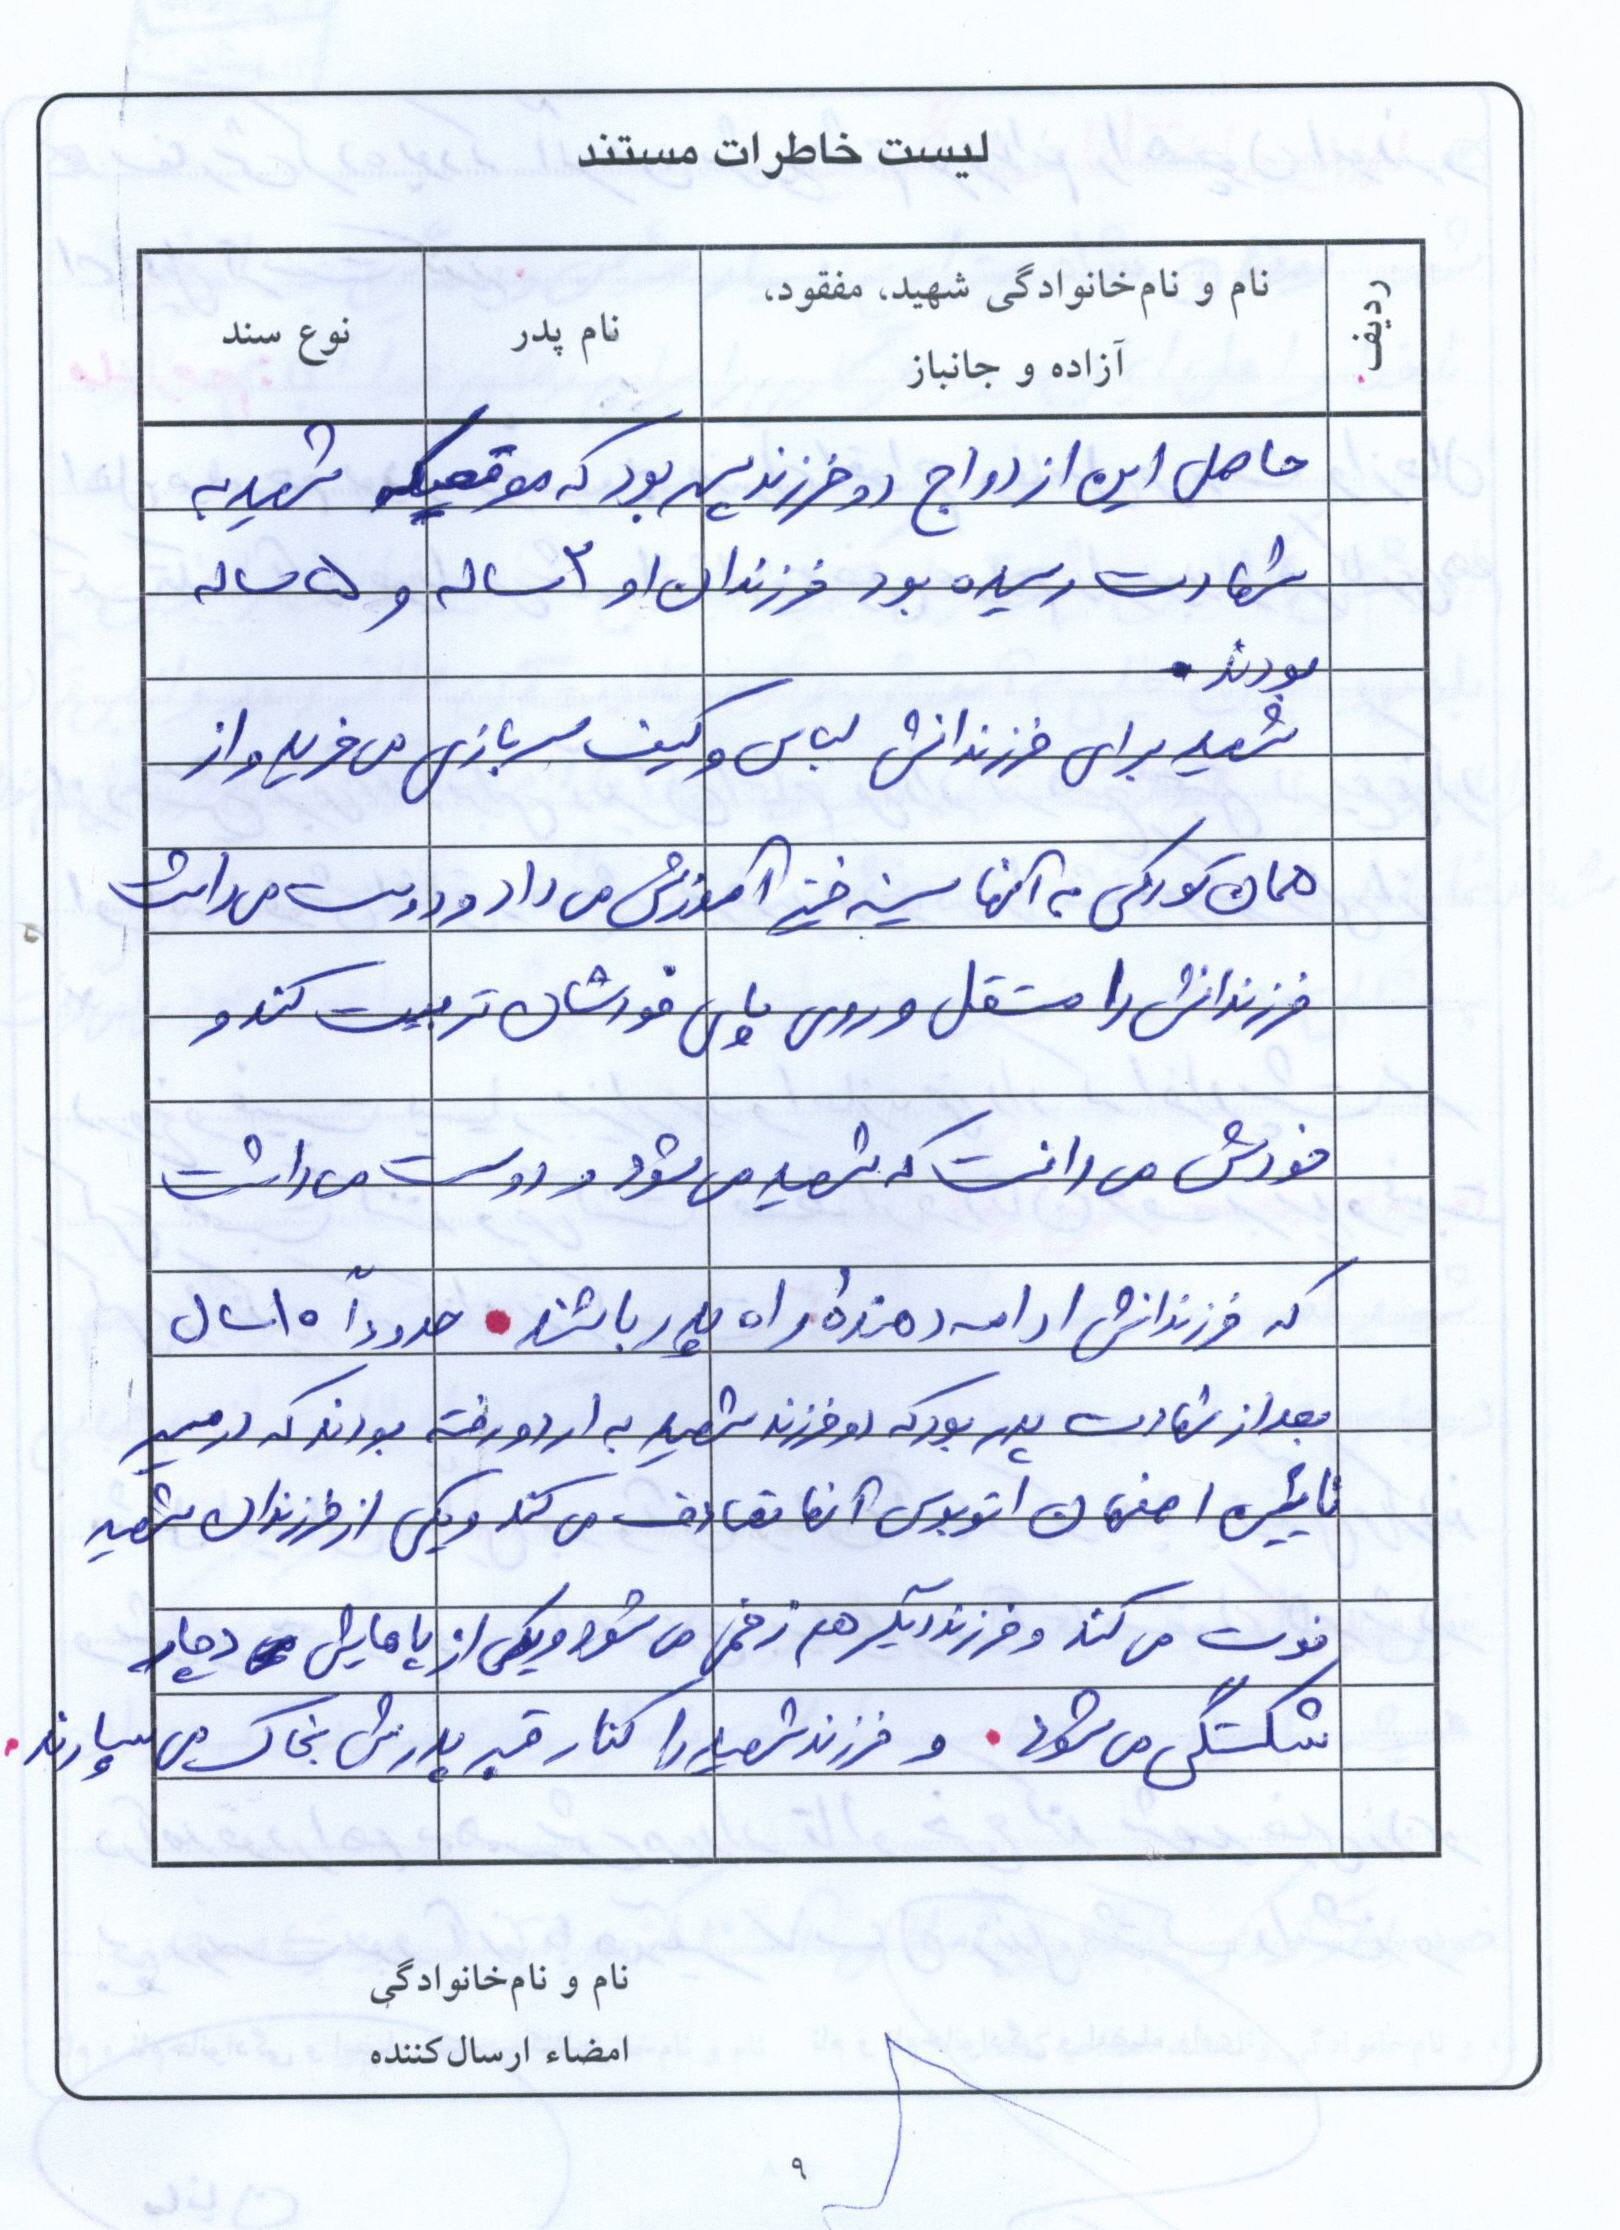 لیست خاطرات مستند
ردیف
نام و نام‌خانوادگی شهید، مفقود،
آزاده و جانباز
نام پدر
نوع سند
حاصل این ازدواج دو فرزند پسر بود که موقعیکه شهید به
شهادت رسیده بود فرزندان او ۳ ساله و ۵ ساله
بودند.
شهید برای فرزندانش لباس و کیف سربازی می خرید و از
همان کودکی به آنها سینه خیز آموزش می داد و دوست می داشت
فرزندانش را مستقل و روی پای خودشان تربیت کند و
خودش می دانست که شهید می شود و دوست می داشت
که فرزندانش ادامه دهندهٔ راه پدر باشند. حدوداً ۱۰ سال
بعد از شهادت پدر بود که دو فرزند شهید به اردو رفته بودند که در مسیر
نایین اصفهان اتوبوس آنها تصادف می کند و یکی از فرزندان شهید
فوت می کند و فرزند دیگر هم زخمی می شود و یکی از پاهایش دچار
شکستگی می شود. و فرزند شهید را کنار قبر پدرش بخاک می سپارند.
نام و نام‌خانوادگی
امضاء ارسال‌کننده
۹